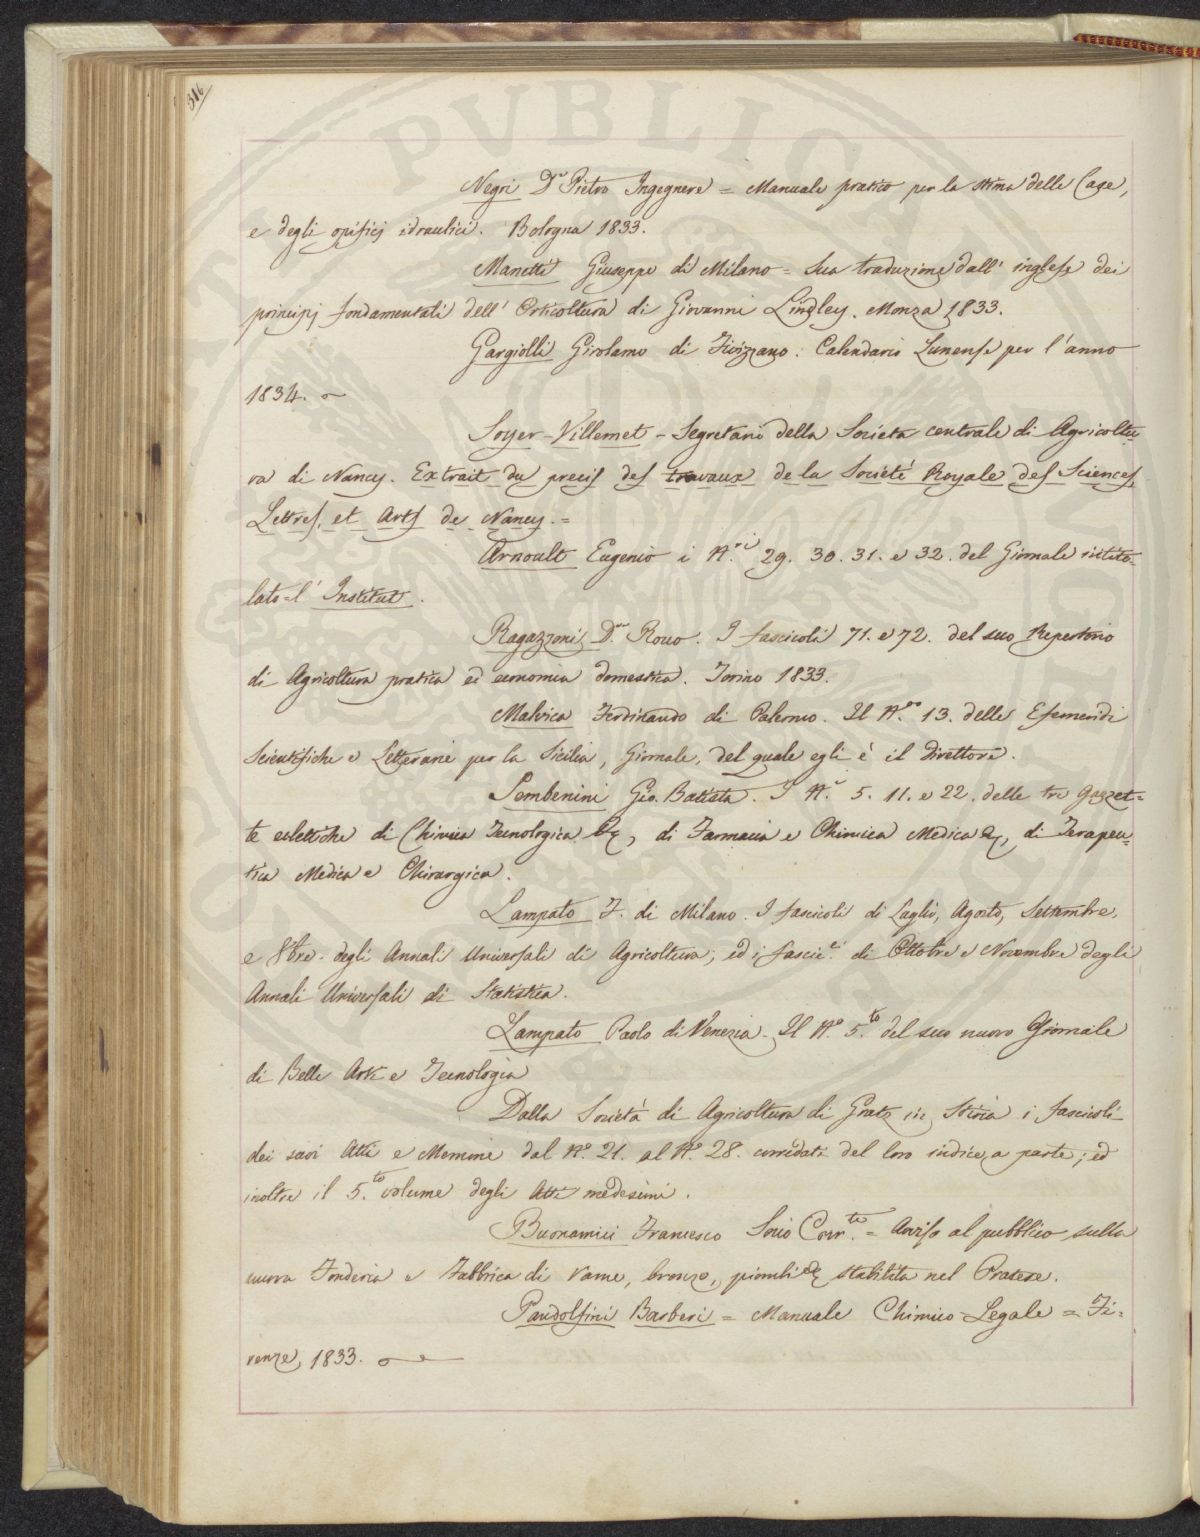 316
PVBLICAE
Negri D.r Pietro Ingegnere = Manuale pratico per la stima delle Case,
e degli opificj idraulici. Bologna 1833.
Manetti Giuseppe di Milano = Sua traduzione dall' inglese dei
principj fondamentali dell' Orticoltura di Giovanni Lindley. Monza 1833.
Gargiolli Girolamo di Fivizzano: Calendario Lunense per l'anno
1834.
Soyer-Villemet - Segretario della Società centrale di Agricoltu=
ra di Nancy. Extrait du precis des travaux de la Societé Royale des Sciences,
Lettres, et Arts de Nancy. =
Arnoult Eugenio i N.ri 29. 30. 31. e 32. del Giornale intito=
lato = l' Institut.
Ragazzoni D.r Rocco. I fascicoli 71. e 72. del suo Repertorio
di Agricoltura pratica ed economia domestica. Torino 1833.
Malvica Ferdinando di Palermo. Il N.ro 13. delle Efemeridi
Scientifiche e Letterarie per la Sicilia, Giornale, del quale egli è il Direttore.
Sembenini Gio. Batista. I N.i 5. 11. e 22. delle tre Gazzet=
te eclettiche di Chimica Tecnologica &c, di Farmacia e Chimica Medica &c, di Terapeu=
tica Medica e Chirurgica.
Lampato F. di Milano. I fascicoli di Luglio, Agosto, Settembre,
e 8bre. degli Annali Universali di Agricoltura; ed i fascic.i di Ottobre e Novembre degli
Annali Universali di Statistica.
Lampato Paolo di Venezia. Il N.o 5.to del suo nuovo Giornale
di Belle Arti e Tecnologia
Dalla Società di Agricoltura di Gratz in Stiria i fascicoli
dei suoi Atti e Memorie dal N.o 21. al N.o 28. corredati del loro indice, a parte; ed
inoltre il 5.to volume degli Atti medesimi.
Buonamici Francesco Socio Corr.te = Avviso al pubblico sulla
nuova Fonderia e Fabbrica di rame, bronzo, piombi &c stabilita nel Pratese.
Pandolfini Barberi = Manuale Chimico-Legale = Fi=
renze, 1833.